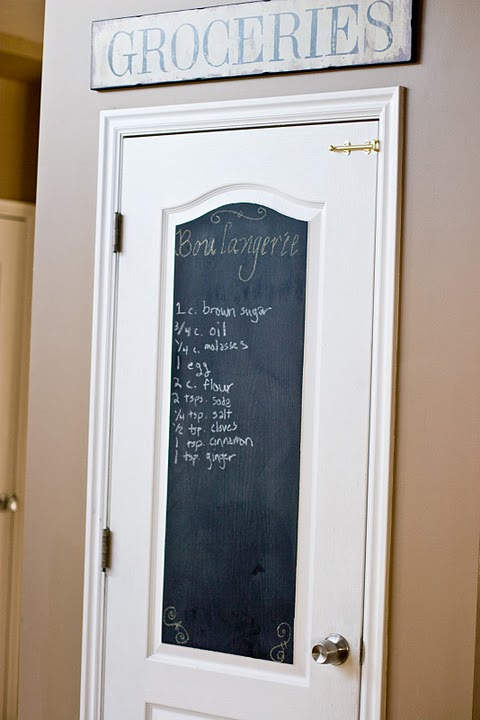 GROCERIES
Boulangerie
1 c. brown sugar
3/4 c. oil
1/4 c. molasses
1 egg
2 c. flour
2 tsps. soda
1/4 tsp. salt
1/2 tsp. cloves
1 tsp. cinnamon
1 tsp. ginger